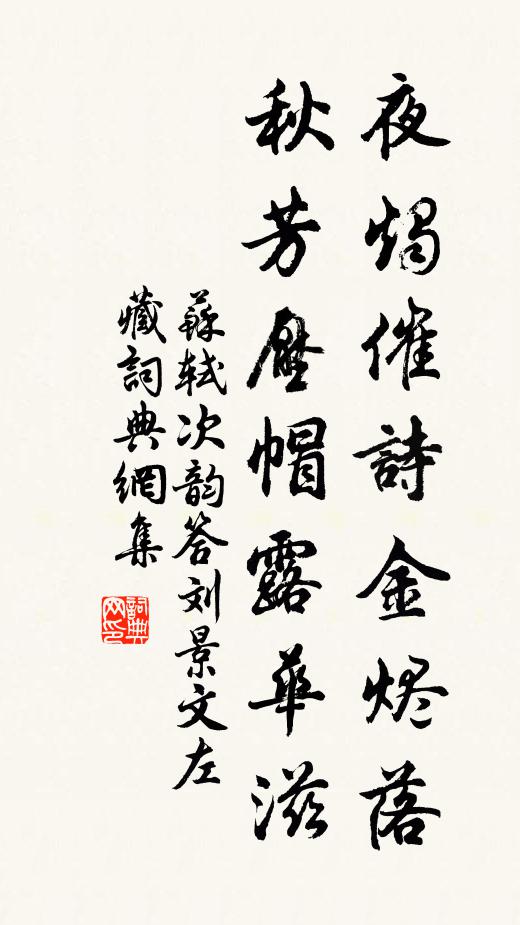 夜燭催詩金烬落
秋芳壓帽露華滋
蘇軾次韵答刘景文左
藏詞典網集
詞典
网印